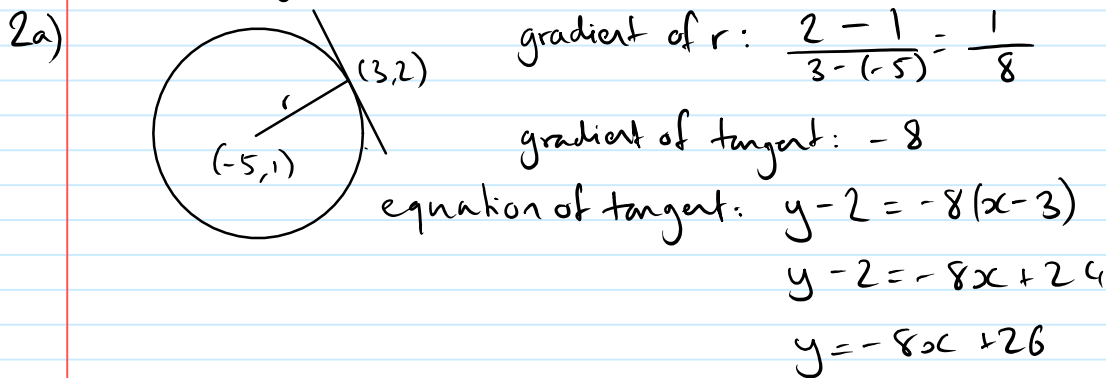 2a)
gradient of r: 2 - 1 / 3 - (-5) = 1 / 8
(3,2)
r
gradient of tangent: - 8
(-5,1)
equation of tangent: y - 2 = -8(x - 3)
y - 2 = -8x + 24
y = -8x + 26